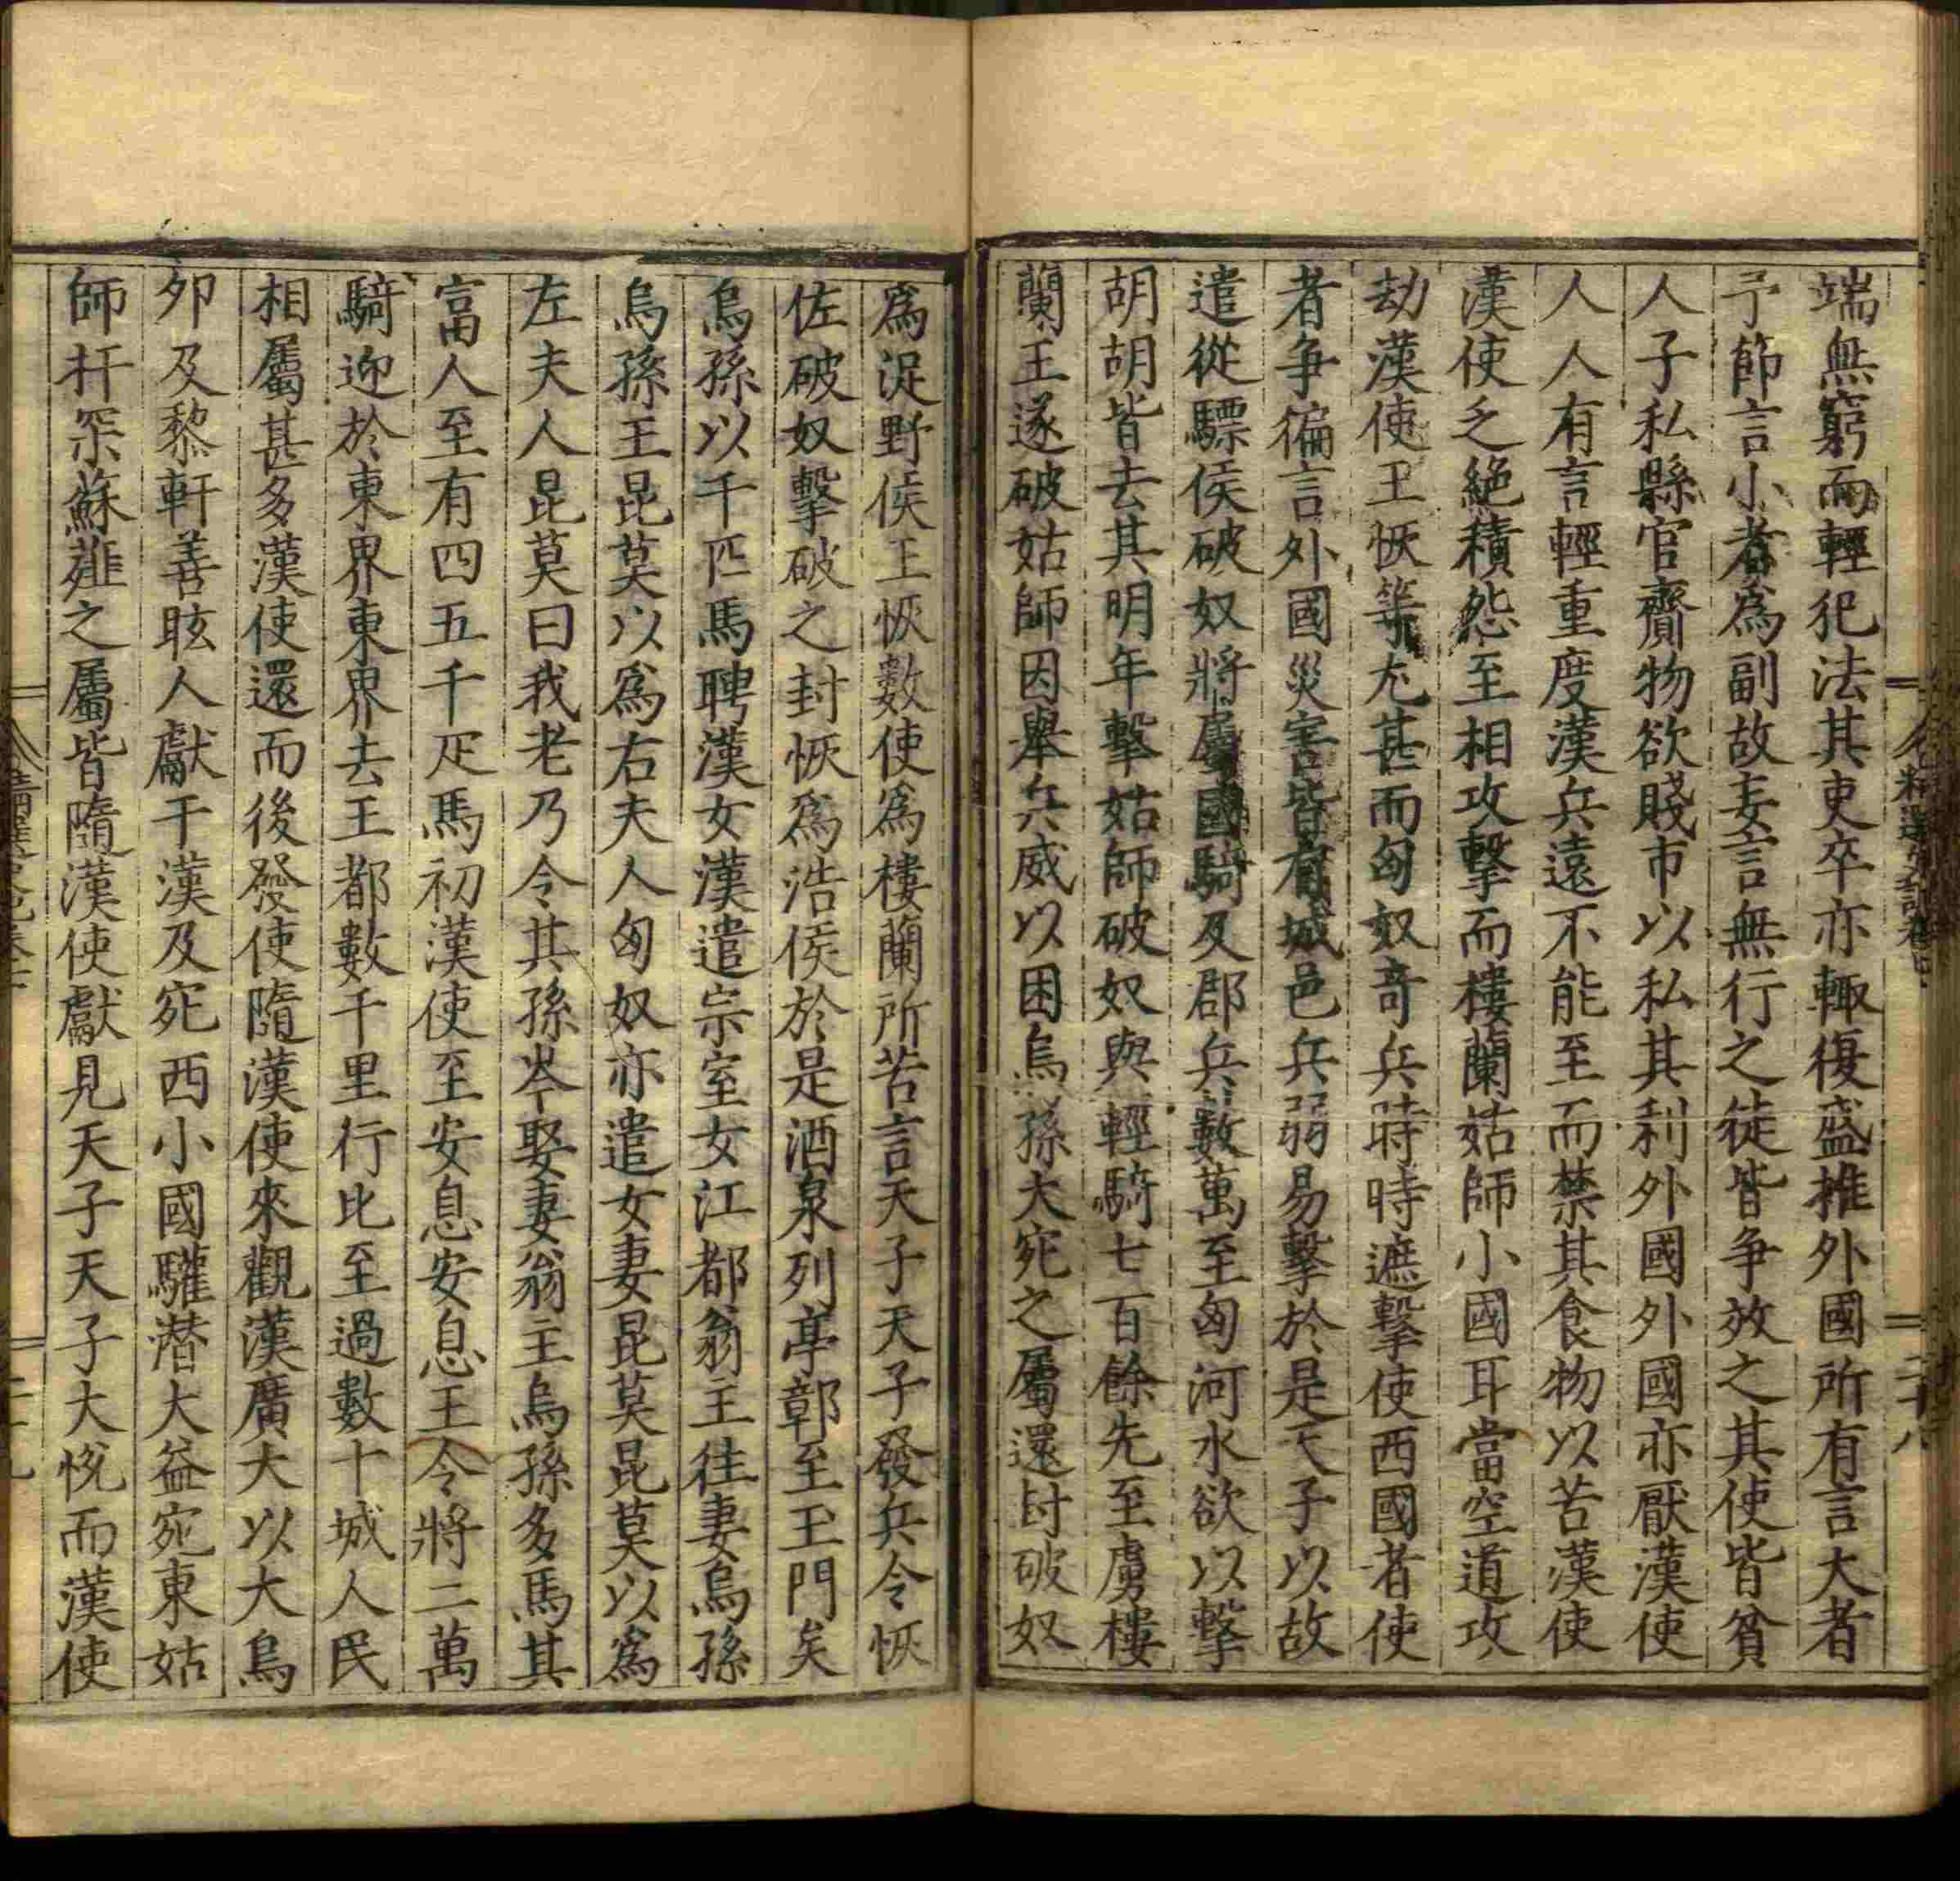 端無窮而輕犯法其吏卒亦輒復盛推外國所有言大者
予節言小者爲副故妄言無行之徒皆争效之其使皆貧
人子私縣官齎物欲賤市以私其利外國外國亦厭漢使
人人有言輕重度漢兵遠不能至而禁其食物以苦漢使
漢使乏絶積怨至相攻擊而樓蘭姑師小國耳當空道攻
劫漢使王恢等尤甚而匈奴奇兵時時遮擊使西國者使
者争徧言外國災害皆有城邑兵弱易擊於是天子以故
遣從驃侯破奴將屬國騎及郡兵數萬至匈河水欲以擊
胡胡皆去其明年擊姑師破奴與輕騎七百餘先至虜樓
蘭王遂破姑師因舉兵威以困烏孫大宛之屬還封破奴
爲浞野侯王恢數使爲樓蘭所苦言天子天子發兵令恢
佐破奴擊破之封恢爲浩侯於是酒泉列亭鄣至玉門矣
烏孫以千匹馬聘漢女漢遣宗室女江都翁主往妻烏孫
烏孫王昆莫以爲右夫人匈奴亦遣女妻昆莫昆莫以爲
左夫人昆莫曰我老乃令其孫岑娶妻翁主烏孫多馬其
富人至有四五千疋馬初漢使至安息安息王令將二萬
騎迎於東界東界去王都數千里行比至過數十城人民
相屬甚多漢使還而後發使隨漢使來觀漢廣大以大鳥
卵及黎軒善眩人獻于漢及宛西小國驩潜大益宛東姑
師扞罙蘇薤之屬皆隨漢使獻見天子天子大悅而漢使
精選史記卷七
二十八